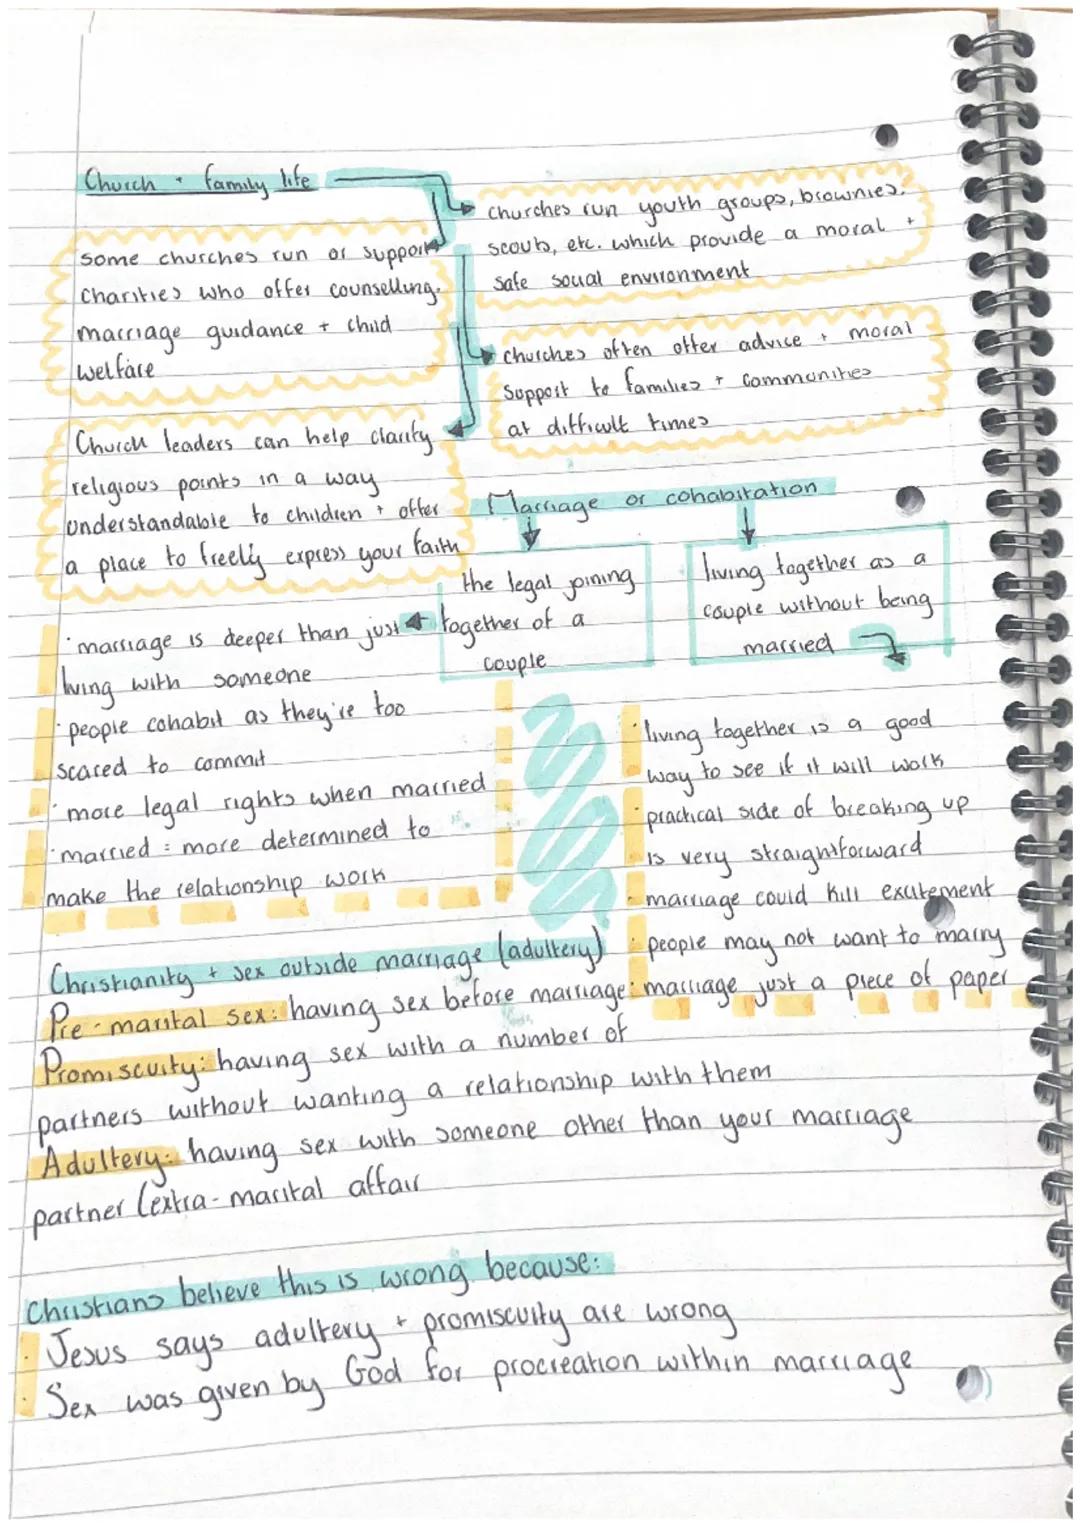 Church + family life
churches run youth groups, brownies,
scouts, etc. which provide a moral +
safe social environment
some churches run or support
charities who offer counselling,
marriage guidance + child
welfare
churches often offer advice + moral
support to families + communities
at difficult times
Church leaders can help clarify
religious points in a way
understandable to children + offer
a place to freely express your faith
Marriage or cohabitation
the legal joining
together of a
couple
living together as a
couple without being
married
· marriage is deeper than just
living with someone
· people cohabit as they're too
scared to commit
· more legal rights when married
· married = more determined to
make the relationship work
· living together is a good
way to see if it will work
· practical side of breaking up
is very straightforward
· marriage could kill excitement
· people may not want to marry
· marriage just a piece of paper
Christianity + sex outside marriage (adultery)
Pre-marital sex: having sex before marriage
Promiscuity: having sex with a number of
partners without wanting a relationship with them
Adultery: having sex with someone other than your marriage
partner (extra-marital affair
Christians believe this is wrong because:
· Jesus says adultery + promiscuity are wrong
· Sex was given by God for procreation within marriage